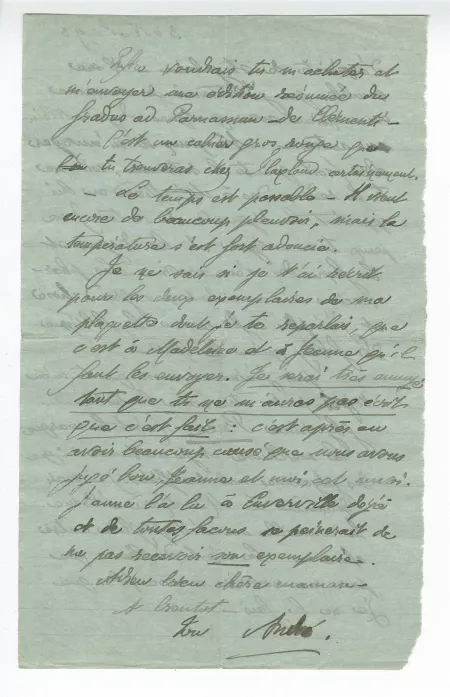 voudrais tu m'acheter et
m'envoyer une édition résumée du
Gradus ad Parnassum - de Clementi -
C'est un cahier gros, rouge que
tu trouveras chez certainement.
- Le temps est passable - Il vient
encore de beaucoup pleuvoir, mais la
température s'est fort adoucie.
Je ne sais si je t'ai récrit
pour les deux exemplaires de ma
plaquette dont je te reparlais, que
c'est à Madeleine et à Jeanne qu'il
faut les envoyer. Je serai très ennuyé
tant que tu ne m'auras pas écrit
que c'est fait : c'est après en
avoir beaucoup causé que nous avons
jugé bon, Jeanne et moi, cet envoi.
Jeanne l'a lu à Cuverville déjà
et de toutes façons se peinerait de
ne pas recevoir son exemplaire.
Adieu bien chère maman -
A bientôt -
Ton André.